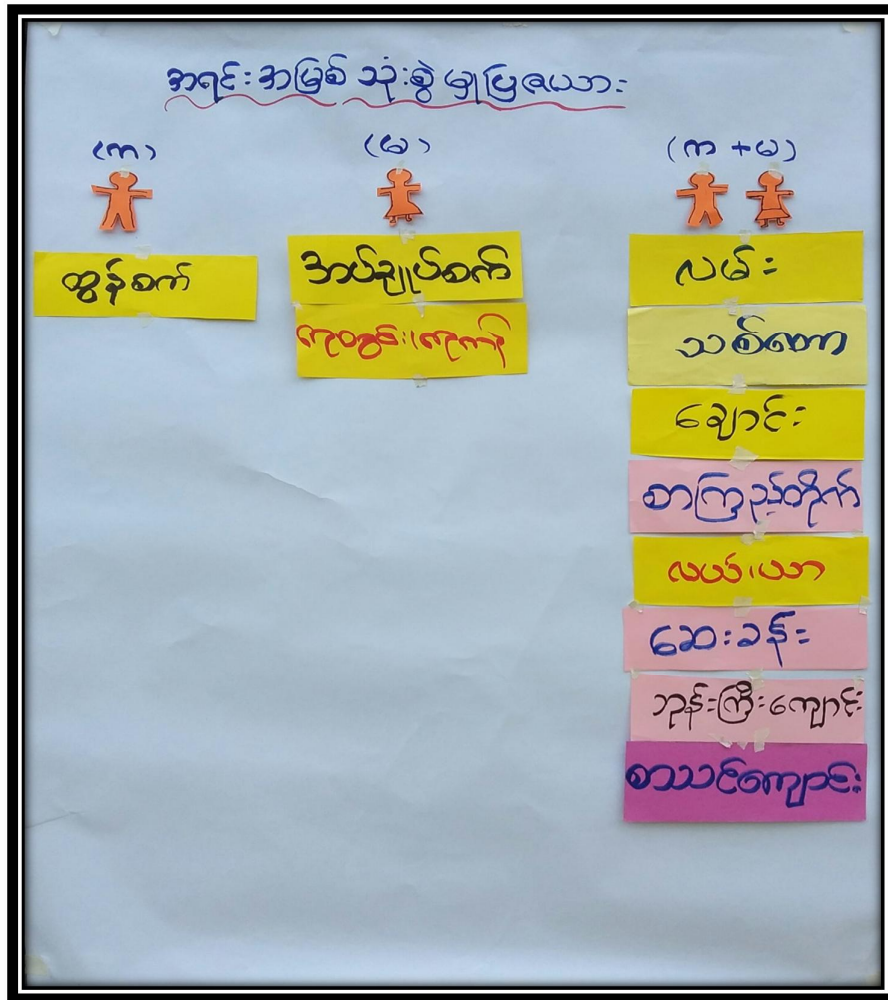 အရင်းအမြစ် သုံးစွဲမှုပြဇယား
(က) (မ) (က + မ)
ထွန်စက်
အပ်ချုပ်စက်
ရေတွင်း၊ရေကန်
လမ်း
သစ်တော
ချောင်း
စာကြည့်တိုက်
လယ်၊ယာ
ဆေးခန်း
ဘုန်းကြီးကျောင်း
စာသင်ကျောင်း